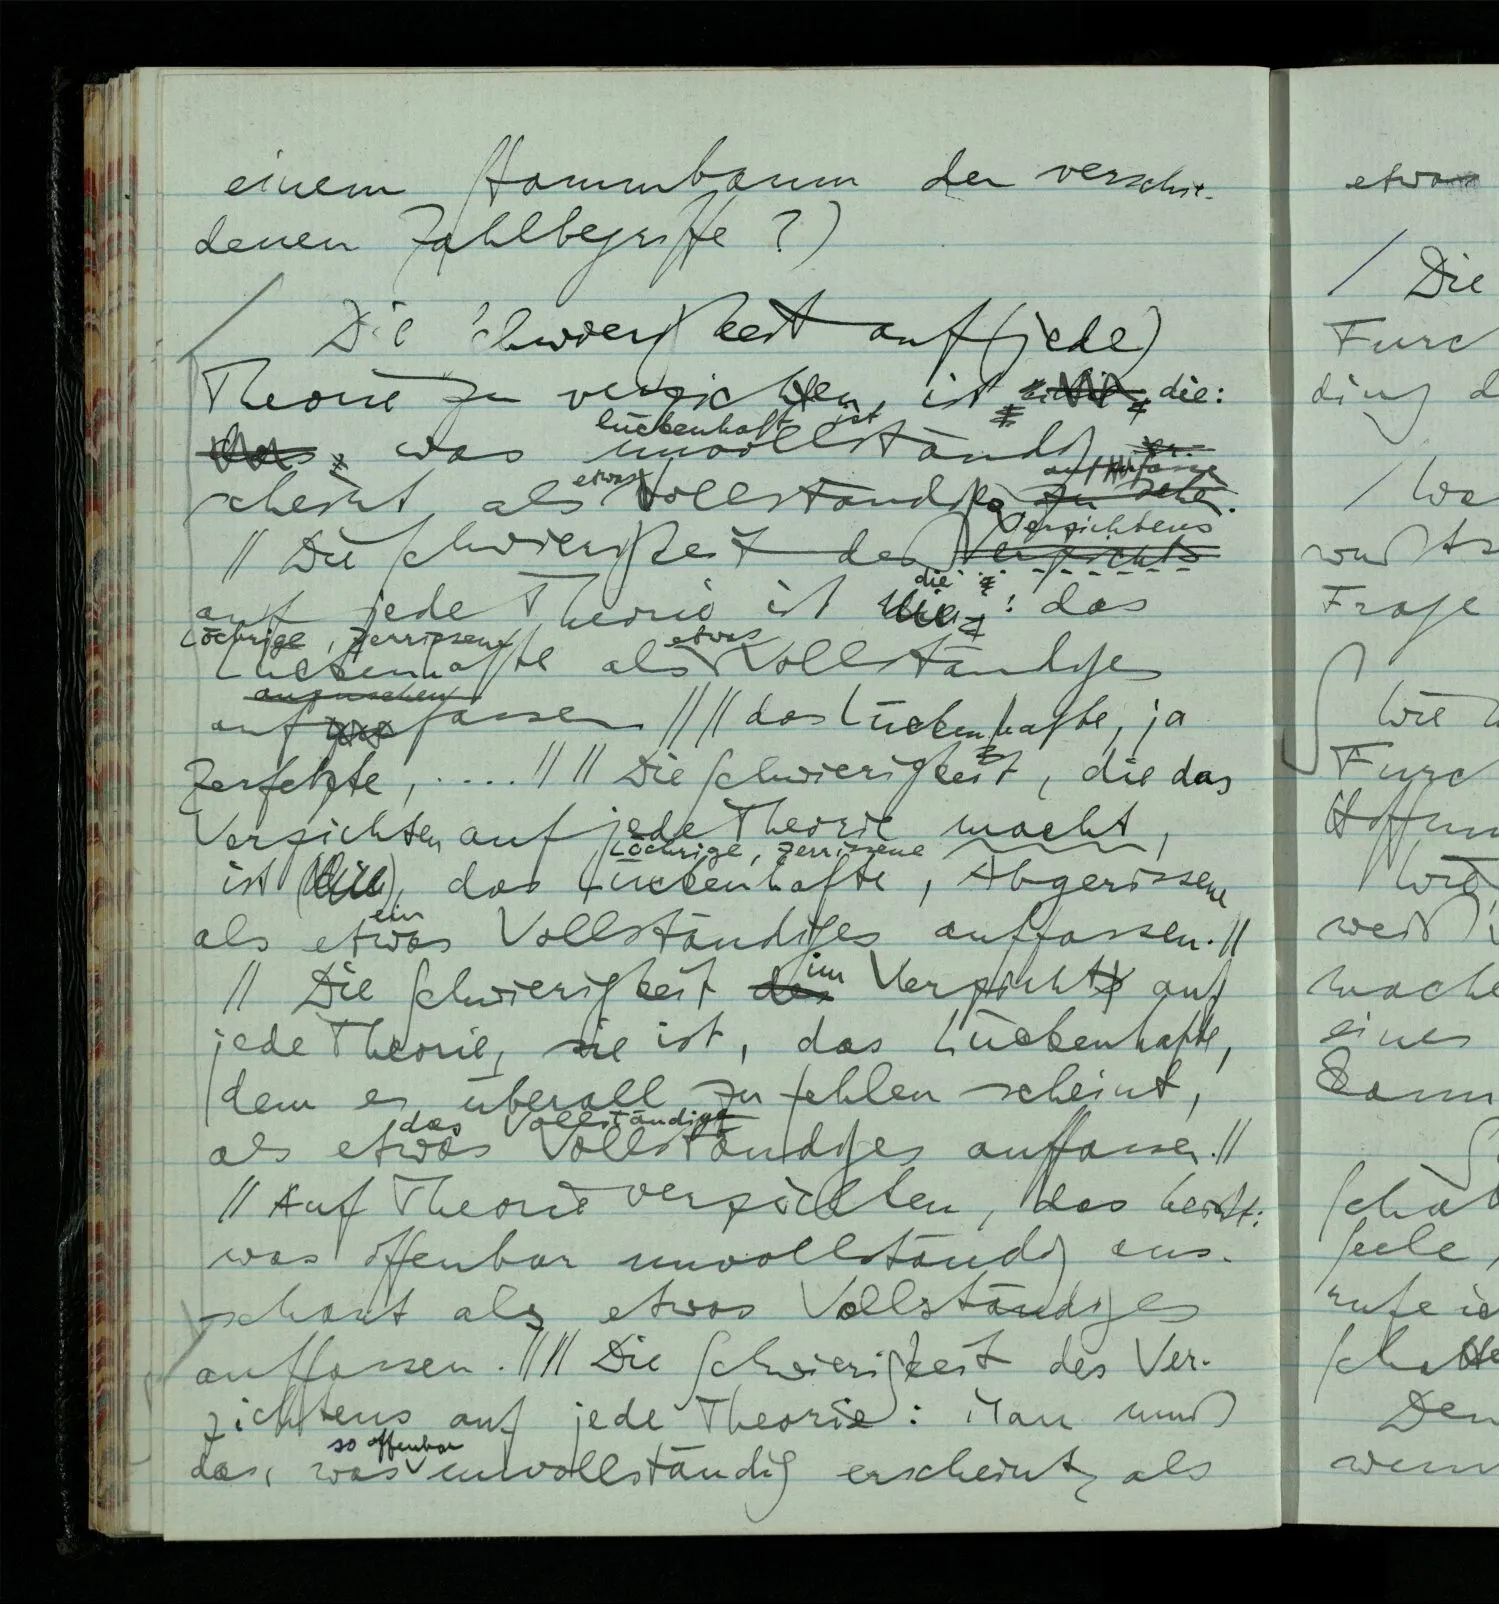 einem Stammbaum der verschie-
denen Zahlbegriffe?)
/ Die Schwierigkeit auf (jede)
Theorie zu verzichten, ist die:
lückenhaft ist
was unvollständig er-
etwas aufzufassen
scheint als Vollständiges zu sehen.
Verzichtens
// Die Schwierigkeit des Verzichts
die
auf jede Theorie ist : das
Löchrige, Zerrissene etwas
Lückenhafte als Vollständiges
anzusehen
auffassen // // das Lückenhafte, ja
Zerfetzte, .... // // Die Schwierigkeit, die das
Verzichten auf jede Theorie macht,
Löchrige, Zerrissene
ist (die), das Lückenhafte, Abgerissene
ein
als etwas Vollständiges auffassen. //
im
// Die Schwierigkeit des Verzicht auf
jede Theorie, sie ist, das Lückenhafte,
dem es überall zu fehlen scheint,
das Vollständige
als etwas Vollständiges auffassen. //
// Auf Theorie verzichten, das heißt:
was offenbar unvollständig aus-
schaut als etwas Vollständiges
auffassen. // // Die Schwierigkeit des Ver-
zichtens auf jede Theorie: Man muß
so offenbar
das, was unvollständig erscheint, als
etwas
/ Die
Furc
ding d
Frage
Wie
Furc
Hoffnu
mache
eines
kann
Seele,
rufe ic
Den
wenn